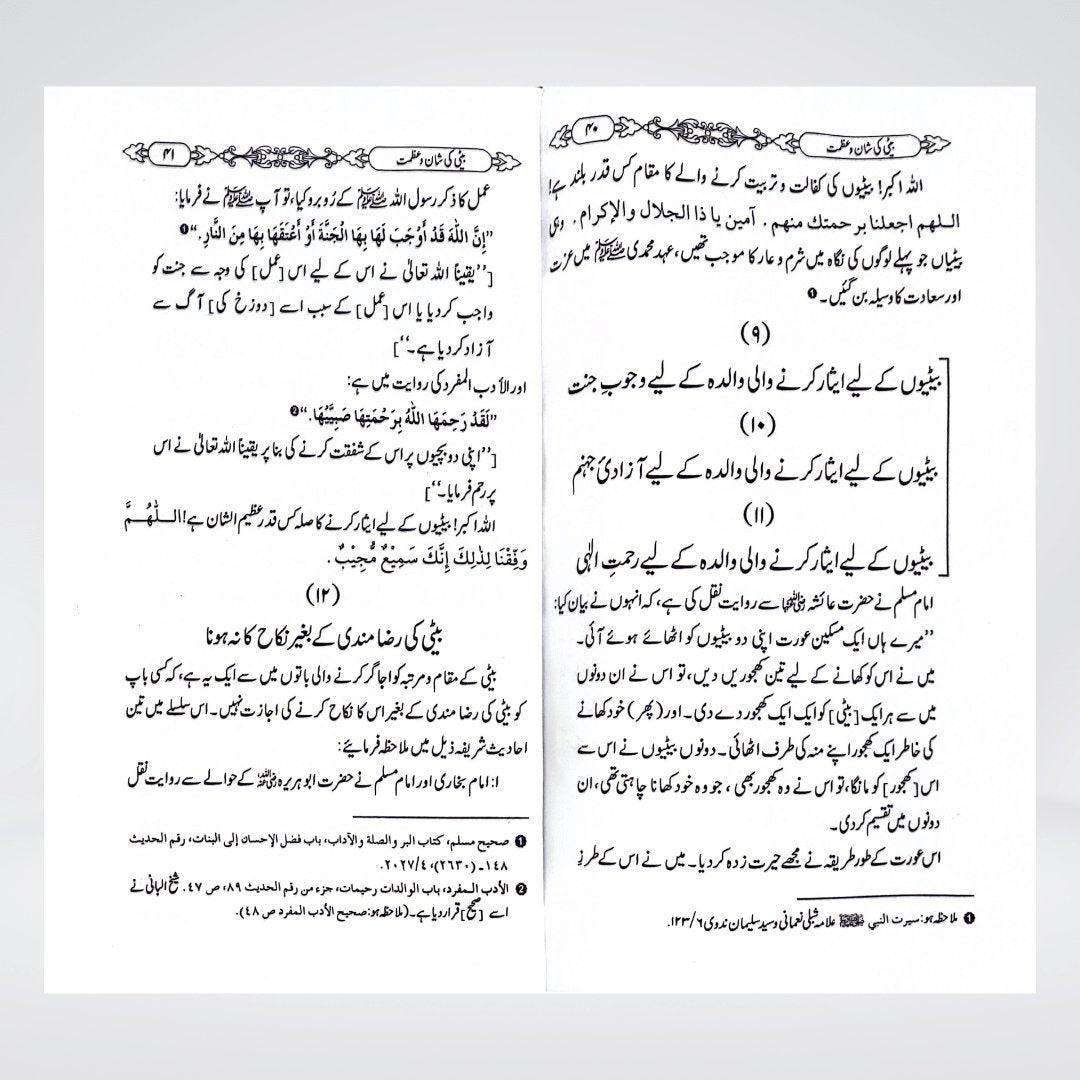 بیٹی کی شان و عظمت
۴۰
اللہ اکبر! بیٹیوں کی کفالت و تربیت کرنے والے کا مقام کس قدر بلند ہے!
اللهم اجعلنا برحمتك منهم. آمین یا ذا الجلال والإکرام. وہی
بیٹیاں جو پہلے لوگوں کی نگاہ میں شرم و عار کا موجب تھیں، عہد محمدی ﷺ میں عزت
اور سعادت کا وسیلہ بن گئیں۔ ❶
(۹)
بیٹیوں کے لیے ایثار کرنے والی والدہ کے لیے وجوبِ جنت
(۱۰)
بیٹیوں کے لیے ایثار کرنے والی والدہ کے لیے آزادیٔ جہنم
(۱۱)
بیٹیوں کے لیے ایثار کرنے والی والدہ کے لیے رحمتِ الٰہی
امام مسلم نے حضرت عائشہ رضی اللہ عنہا سے روایت نقل کی ہے، کہ انہوں نے بیان کیا:
’’میرے ہاں ایک مسکین عورت اپنی دو بیٹیوں کو اٹھائے ہوئے آئی۔
میں نے اس کو کھانے کے لیے تین کھجوریں دیں، تو اس نے ان دونوں
میں سے ہر ایک [بیٹی] کو ایک ایک کھجور دے دی۔ اور (پھر) خود کھانے
کی خاطر ایک کھجور اپنے منہ کی طرف اٹھائی۔ دونوں بیٹیوں نے اس سے
اس [کھجور] کو مانگا، تو اس نے وہ کھجور بھی، جو وہ خود کھانا چاہتی تھی، ان
دونوں میں تقسیم کر دی۔
اس عورت کے طور طریقہ نے مجھے حیرت زدہ کر دیا۔ میں نے اس کے طرزِ
❶ ملاحظہ ہو: سیرت النبی ﷺ علامہ شبلی نعمانی و سید سلیمان ندوی ۶/۱۲۳.
بیٹی کی شان و عظمت
۴۱
عمل کا ذکر رسول اللہ ﷺ کے رُوبرو کیا، تو آپ ﷺ نے فرمایا:
”إِنَّ اللّٰهَ قَدْ أَوْجَبَ لَهَا بِهَا الْجَنَّةَ أَوْ أَعْتَقَهَا بِهَا مِنَ النَّارِ.“ ❶
[’’یقیناً اللہ تعالیٰ نے اس کے لیے اس [عمل] کی وجہ سے جنت کو
واجب کر دیا یا اس [عمل] کے سبب اسے [دوزخ کی] آگ سے
آزاد کر دیا ہے۔‘‘]
اور الأدب المفرد کی روایت میں ہے:
”لَقَدْ رَحِمَهَا اللّٰهُ بِرَحْمَتِهَا صَبِيَّيْهَا.“ ❷
[’’اپنی دو بچیوں پر اس کے شفقت کرنے کی بنا پر یقیناً اللہ تعالیٰ نے اس
پر رحم فرمایا۔‘‘]
اللہ اکبر! بیٹیوں کے لیے ایثار کرنے کا صلہ کس قدر عظیم الشان ہے! اللّٰهُمَّ
وَفِّقْنَا لِذٰلِكَ إِنَّكَ سَمِيْعٌ مُّجِيْبٌ.
(۱۲)
بیٹی کی رضا مندی کے بغیر نکاح کا نہ ہونا
بیٹی کے مقام و مرتبہ کو اجاگر کرنے والی باتوں میں سے ایک یہ ہے، کہ کسی باپ
کو بیٹی کی رضا مندی کے بغیر اس کا نکاح کرنے کی اجازت نہیں۔ اس سلسلے میں تین
احادیث شریفہ ذیل میں ملاحظہ فرمائیے:
ا: امام بخاری اور امام مسلم نے حضرت ابو ہریرہ رضی اللہ عنہ کے حوالے سے روایت نقل
❶ صحیح مسلم، کتاب البر والصلة والآداب، باب فضل الإحسان إلی البنات، رقم الحدیث
۱۴۸ـ (۲۶۳۰)، ۴/۲۰۲۷.
❷ الأدب المفرد، باب الوالدات رحیمات، جزء من رقم الحدیث ۸۹، ص ۴۷. شیخ البانی نے
اسے [صحیح] قرار دیا ہے۔ (ملاحظہ ہو: صحیح الأدب المفرد ص ۴۸).